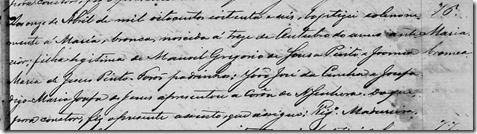 de Abril de mil oitocentos setenta e seis, baptizei solemne- 76.
mente a Maria, branca, nascida a treze de Outubro do anno ante- Maria
rior, filha legitima de Manoel Gregorio de Sousa Pinto e Joanna branca
Maria de Jesus Pinto. padrinhos: João José da Cunha e Josefa
digo Maria Josefa de Jesus apresentou a Corôa de N. Senhora. Do que,
para constar, fiz o presente assento, que assigno: Madureira.
77.